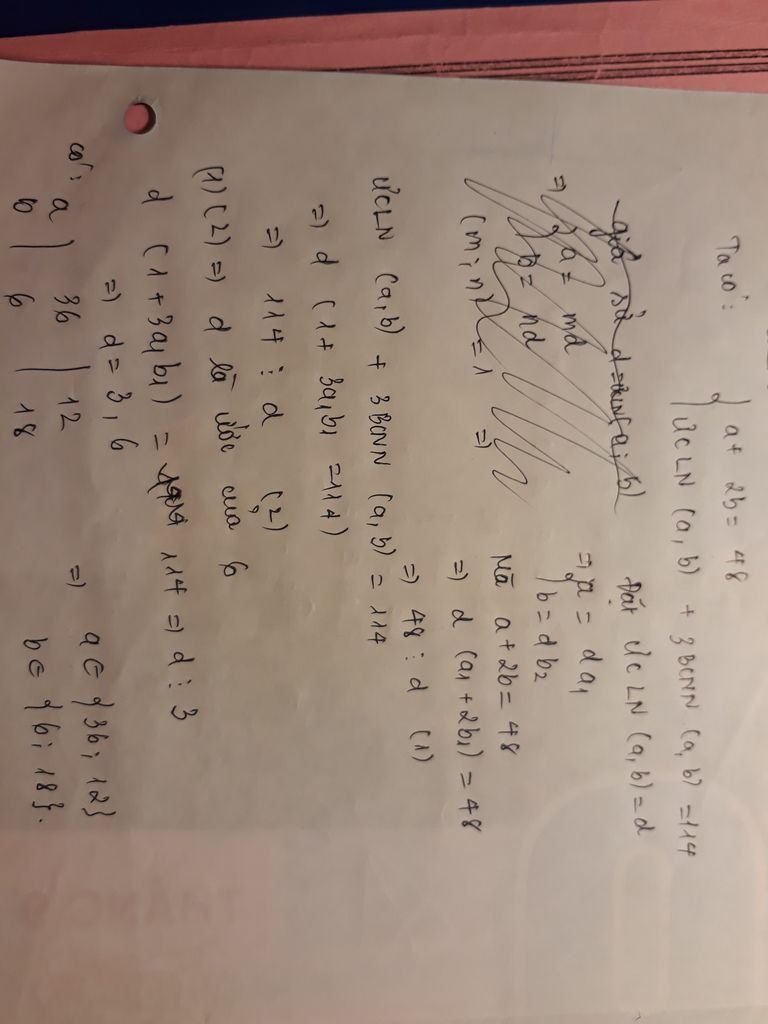 Ta có: { a + 2b = 48
ƯCLN (a, b) + 3BCNN (a, b) = 114
giả sử d = ƯCLN (a; b)
=> { a = md
b = nd
(m; n) = 1 =>
Đặt ƯCLN (a, b) = d
=> { a = da1
b = db2
Mà a + 2b = 48
=> d (a1 + 2b1) = 48
=> 48 ⋮ d (1)
ƯCLN (a, b) + 3BCNN (a, b) = 114
=> d (1 + 3a1b1 = 114)
=> 114 ⋮ d (2)
(1) (2) => d là ước của 6
d (1 + 3a1b1) = 114 => d ⋮ 3
=> d = 3, 6
có: a | 36 | 12
b | 6 | 18
=> a ∈ {36; 12}
b ∈ {6; 18}.
THÁNG 9